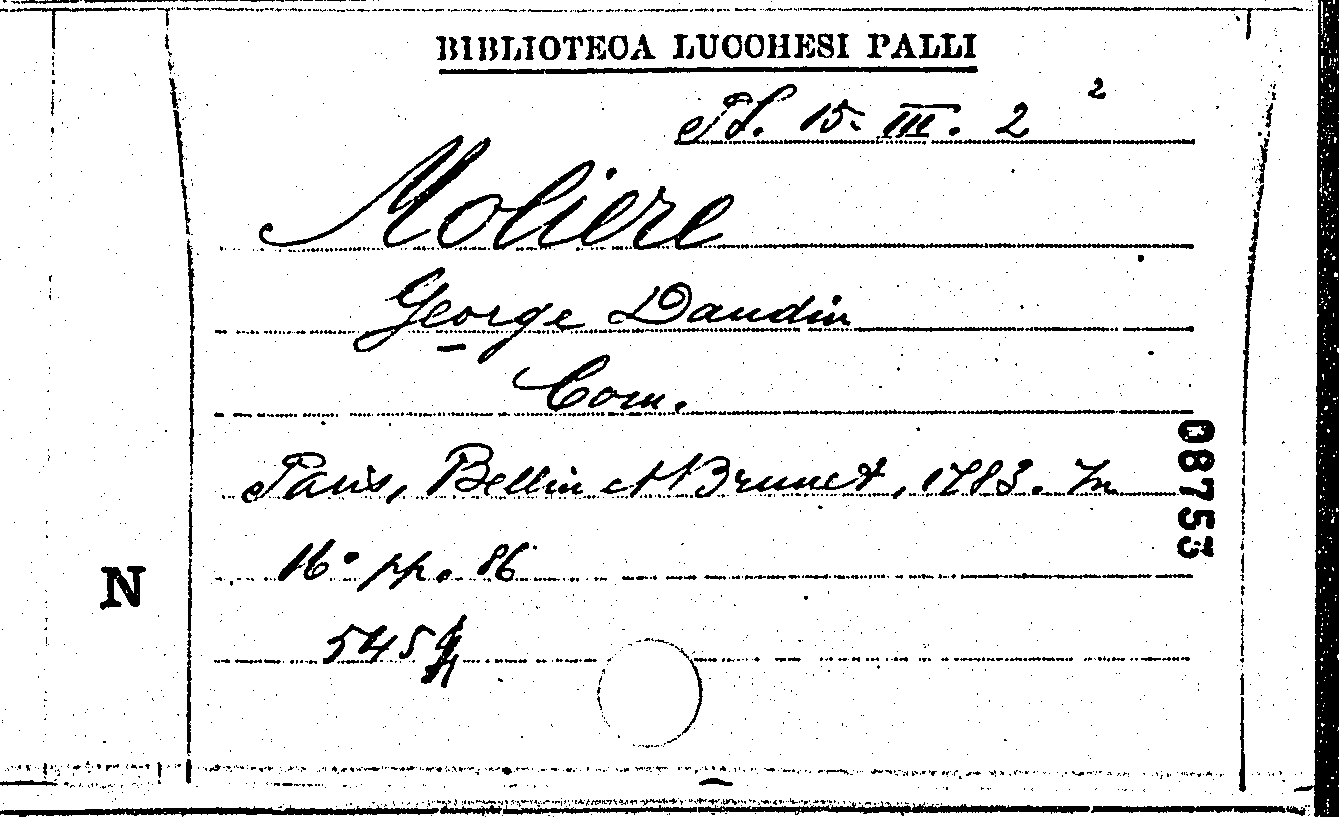 BIBLIOTECA LUCCHESI PALLI
Pl. 15. III. 2 2
Moliere
George Dandin
Com.
Paris, Bellin et Brunet, 1783. In
16° pp. 86
545
N
08753